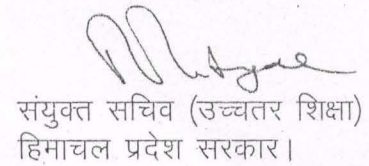 संयुक्त सचिव (उच्चतर शिक्षा)
हिमाचल प्रदेश सरकार।